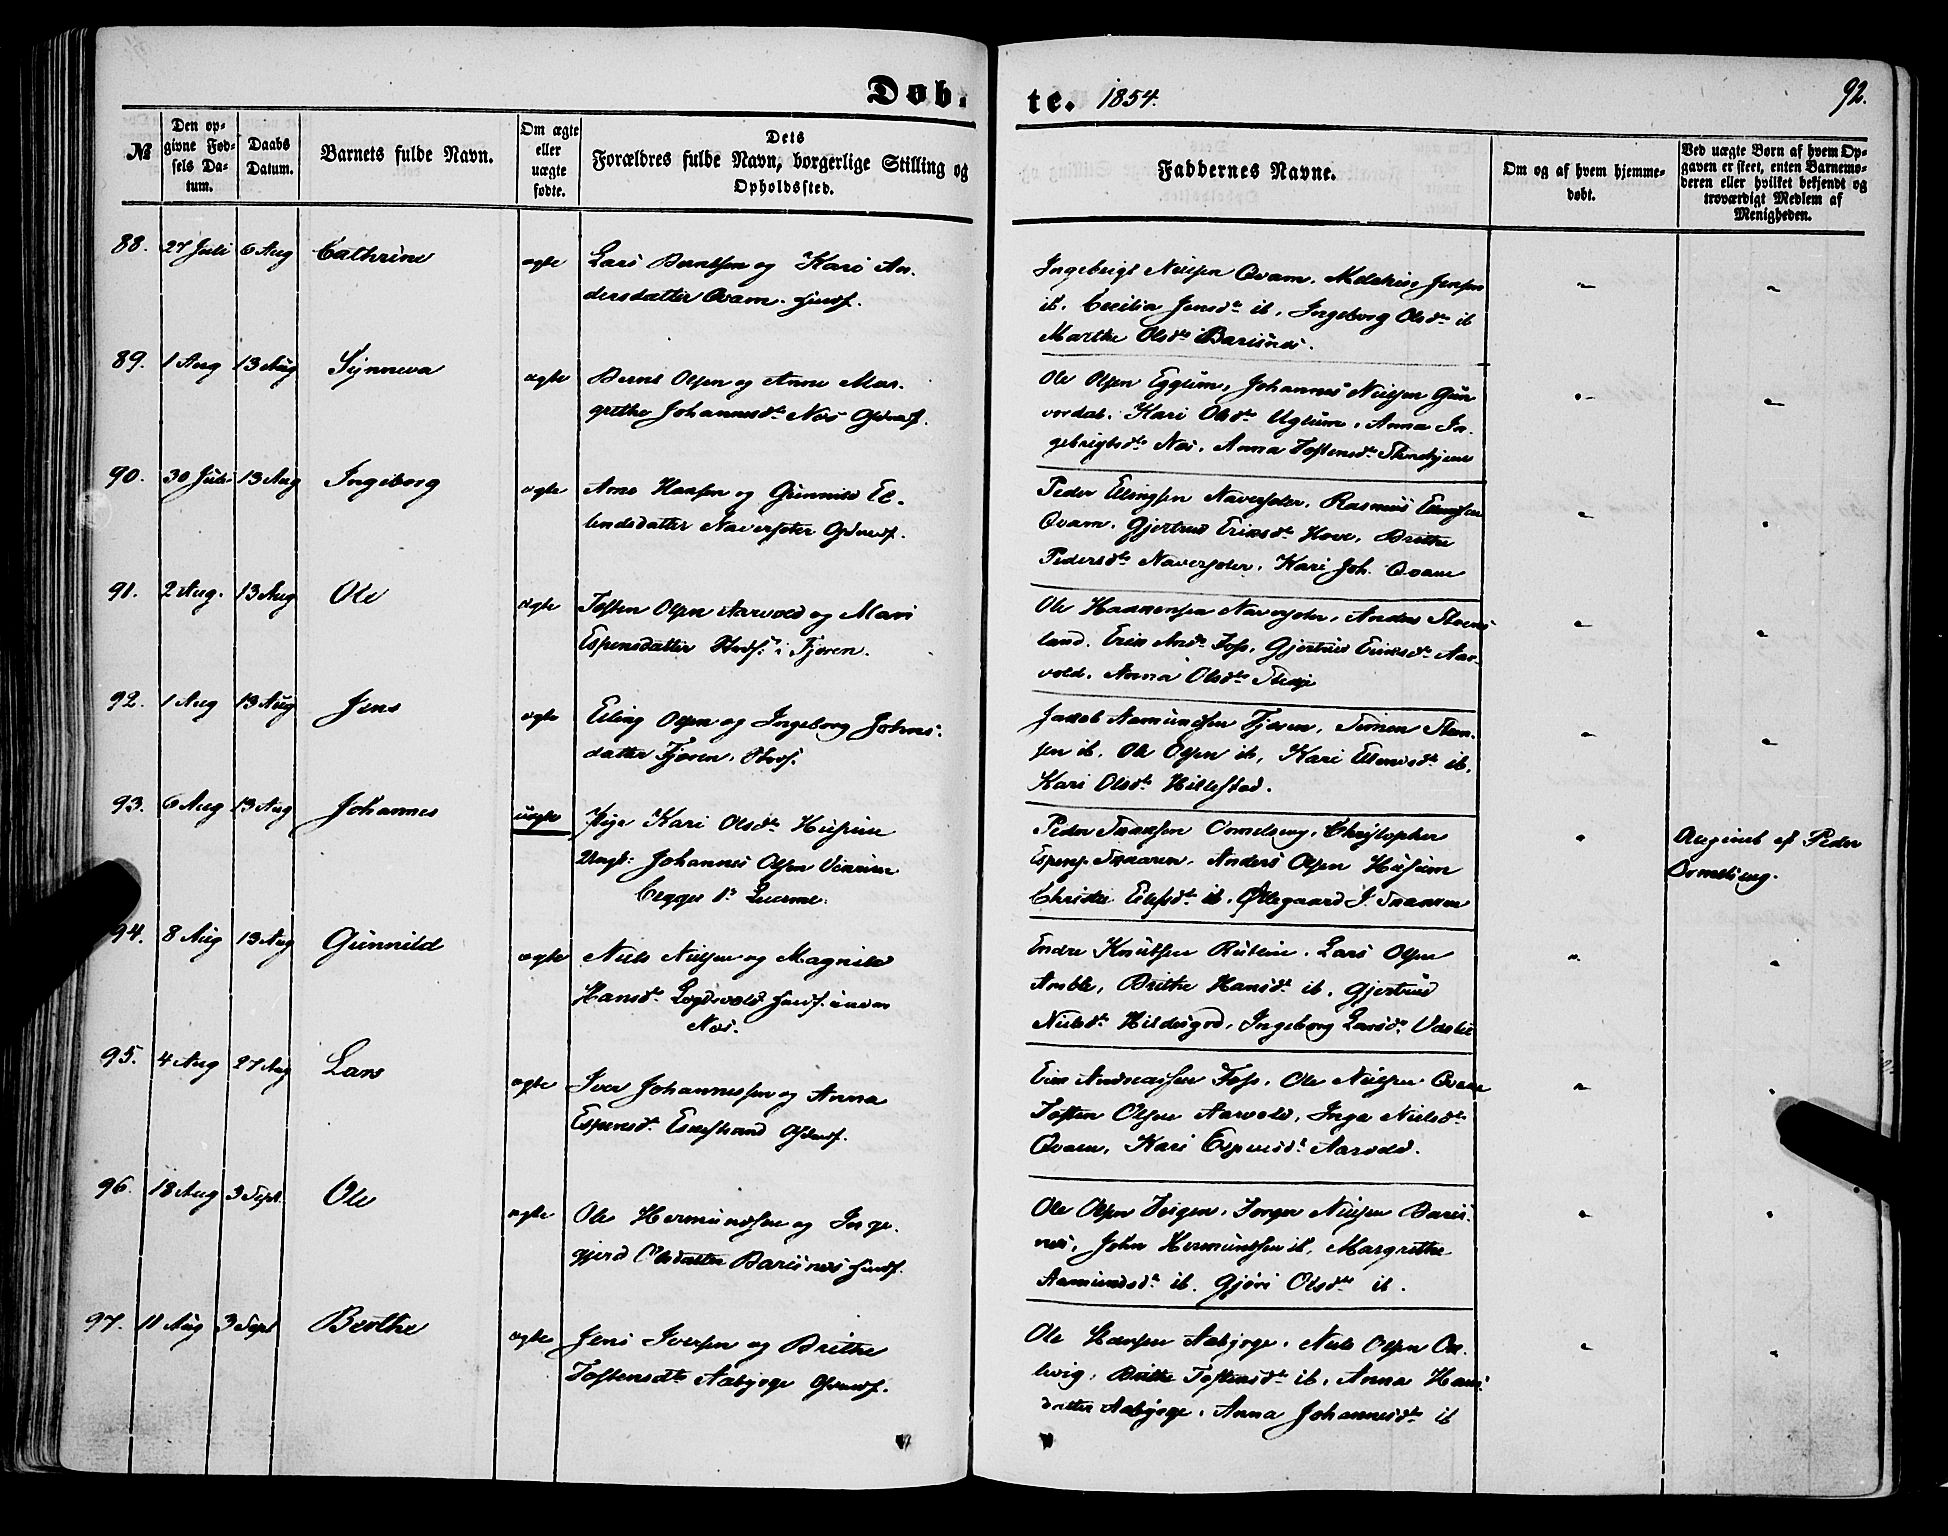 Døb-
te. 1854.
92.
№
Den op-
givne Fød-
sels Da-
tum.
Daabs
Datum.
Barnets fulde Navn.
Om ægte
eller
uægte
fødte.
Dets
Forældres fulde Navn, borgerlige Stilling og
Opholdssted.
Faddernes Navne.
Om og af hvem hjemme-
døbt.
Ved uægte Børn af hvem Op-
gaven er skeet, enten Barnemo-
deren eller hvilket bekjendt og
troværdigt Medlem af
Menigheden.
88. 27 Juli 6 Aug Cathrine ægte Lars Berntsen og Kari An-
dersdatter Qvam
Ingebrigt Nielsen Qvam, Jensen
ib. Cecilia Jensdr ib, Ingeborg Olsdr ib
Marthe Olsdr Barsnes.
89. 1 Aug 13 Aug Synneva ægte Bernt Olsen og Anne Mar-
grethe Johannesdr Nos
Ole Olsen Eggum, Johannes Nielsen Gun
vordal, Kari Olsdr Uglum, Anna In-
gebrigtsdr Nos, Anna Tostensdr
90. 30 Juli 13 Aug Ingeborg ægte Arne Hansen og Gunnild El-
lendsdatter Naversæter
Peder Ellingsen Naversæter, Rasmus
Qvam, Gjertrud Eriksdr Hove, Brithe
Pedersdr Naversæter, Kari Joh. Qvam
91. 2 Aug. 13 Aug Ole ægte Tosten Olsen Aarvold og Mari
Espensdatter i Fjæren.
Ole Naversæter, Anders
land, Erik Foss, Gjertrud Eriksdr Aar-
vold, Anna Olsdr Stedje
92. 1 Aug 13 Aug Jens ægte Elling Olsen og Ingeborg Johns-
datter Fjæren,
Jacob Aamundsen Fjæren, Simen
sen ib, Ole Olsen ib, Kari ib,
Kari Olsdr Hillestad.
93. 6 Aug 13 Aug Johannes uægte Pige Kari Olsdr Husum
Ungk: Johannes Olsen
Begges 1ste
Peder Ormelseng, Christopher
Anders Olsen Husum
ib.
Opgivet af Peder
Ormelseng.
94. 8 Aug 13 Aug Gunnild ægte Niels Nielsen og Magnild
Hansdr
Nos.
Endre Knutsen Lars Olsen
Amble, Brithe Hansdr ib, Gjertrud
Nielsdr Ingeborg Larsdr
95. 4 Aug 27 Aug Lars ægte Iver Johannessen og Anna
Espensdr
Erik Andreassen Foss, Ole Nielsen Qvam
Tosten Olsen Aarvold, Inga Nielsdr
Qvam, Kari Espensdr Aarvold.
96. 18 Aug 3 Sept. Ole ægte Ole Hermundsen og Inge-
gjerd Olsdatter Barsnes
Ole Olsen Nielsen Bars-
nes, John Hermundsen ib, Margrethe
Aamundsdr ib. Gjøri Olsdr ib.
97. 11 Aug 3 Sept Brithe ægte Jens Iversen og Brithe
Tostensdr Aabjøge
Ole Hansen Aabjøge, Niels Olsen
Brithe Tostensdr ib, Anna Hans
datter Aabjøge, Anna Johannesdr ib